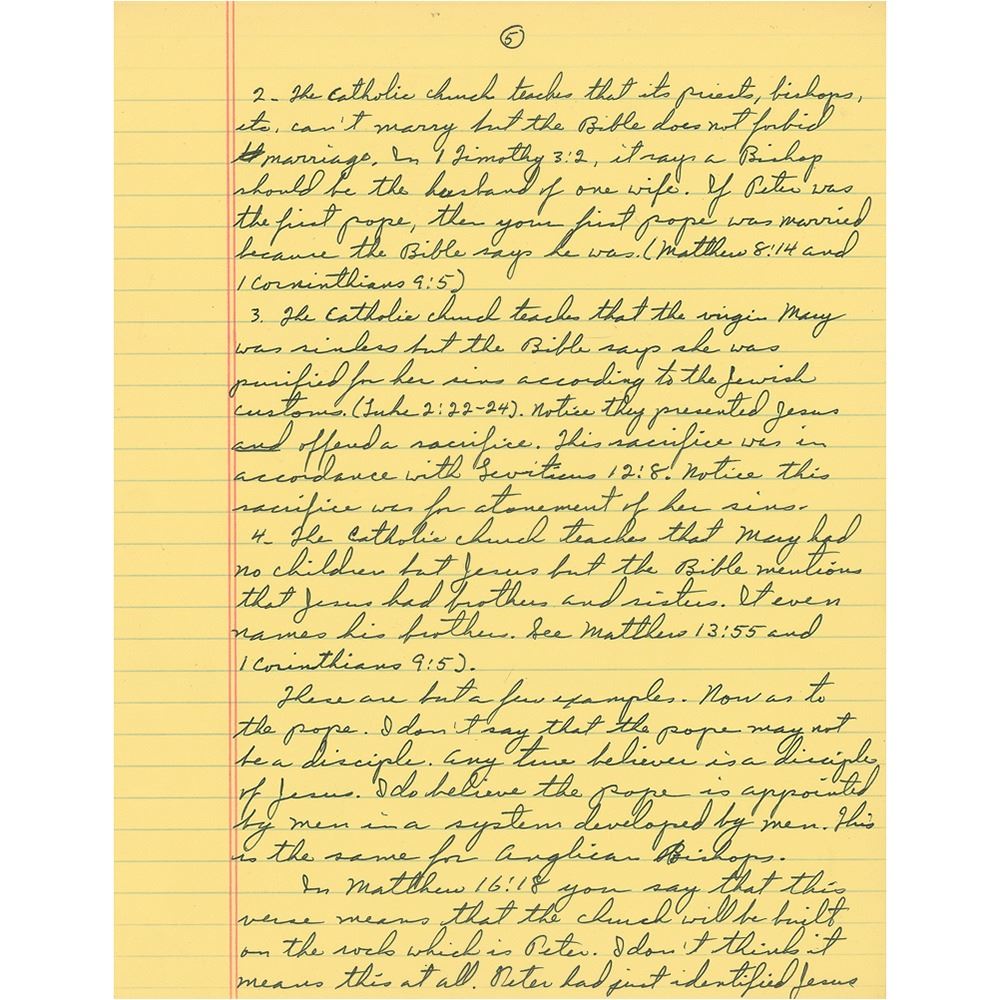 5
2- The Catholic church teaches that its priests, bishops,
etc. can't marry but the Bible does not forbid
marriage. In 1 Timothy 3:2, it says a Bishop
should be the husband of one wife. If Peter was
the first pope, then your first pope was married
because the Bible says he was. (Matthew 8:14 and
1 Corninthians 9:5)
3. The Catholic church teaches that the virgin Mary
was sinless but the Bible says she was
purified for her sins according to the Jewish
customs. (Luke 2:22-24). Notice they presented Jesus
and offered a sacrifice. This sacrifice was in
accordance with Leviticus 12:8. Notice this
sacrifice was for atonement of her sins.
4- The Catholic church teaches that Mary had
no children but Jesus but the Bible mentions
that Jesus had brothers and sisters. It even
names his brothers. See Matthew 13:55 and
1 Corinthians 9:5).
These are but a few examples. Now as to
the pope. I don't say that the pope may not
be a disciple. Any true believer is a disciple
of Jesus. I do believe the pope is appointed
by men in a system developed by men. This
is the same for Anglican Bishops.
In Matthew 16:18 you say that this
verse means that the church will be built
on the rock which is Peter. I don't think it
means this at all. Peter had just identified Jesus